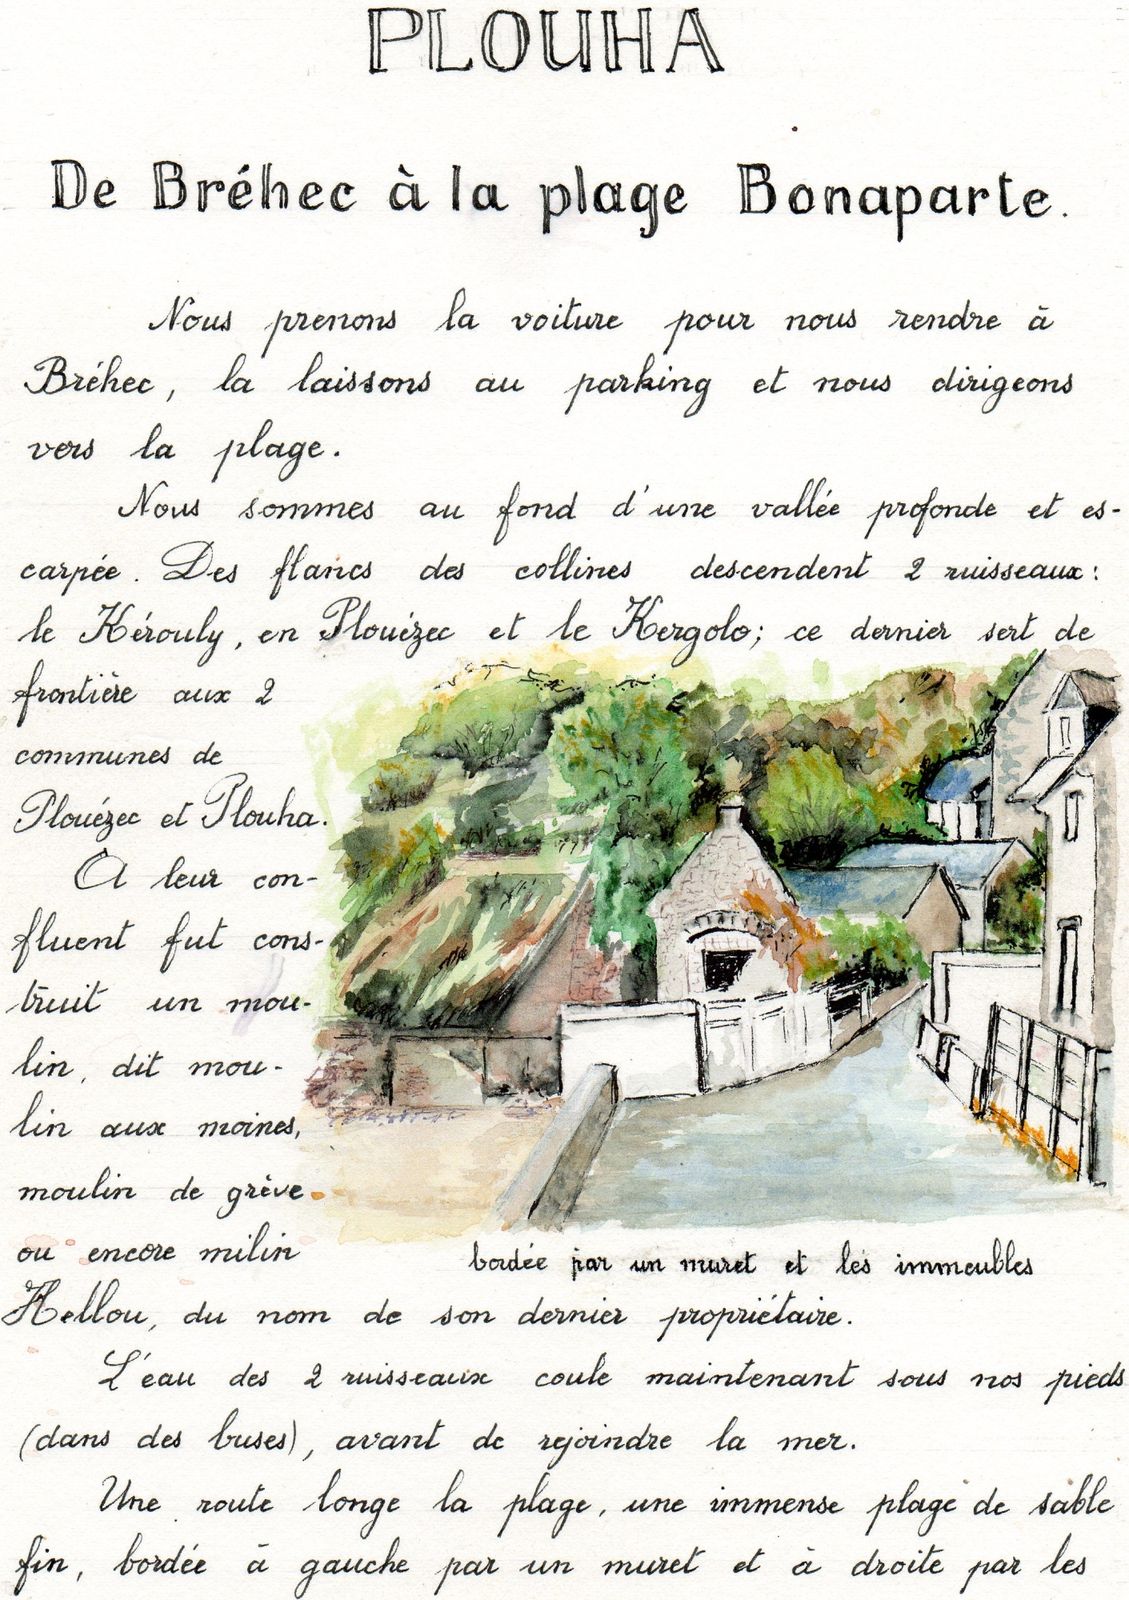 PLOUHA
De Bréhec à la plage Bonaparte.
Nous prenons la voiture pour nous rendre à
Bréhec, la laissons au parking et nous dirigeons
vers la plage.
Nous sommes au fond d'une vallée profonde et es-
carpée. Des flancs des collines descendent 2 ruisseaux:
le Kérouly, en Plouézec et le Kergolo; ce dernier sert de
frontière aux 2
communes de
Plouézec et Plouha.
A leur con-
fluent fut cons-
truit un mou-
lin, dit mou-
lin aux moines,
moulin de grève
ou encore milin
bordée par un muret et les immeubles
Hellou, du nom de son dernier propriétaire.
L'eau des 2 ruisseaux coule maintenant sous nos pieds
(dans des buses), avant de rejoindre la mer.
Une route longe la plage, une immense plage de sable
fin, bordée à gauche par un muret et à droite par les